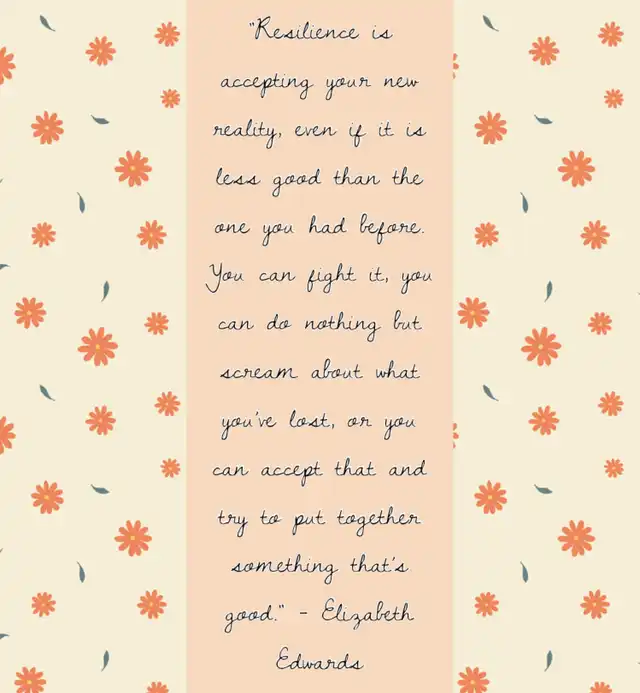 "Resilience is
accepting your new
reality, even if it is
less good than the
one you had before.
You can fight it, you
can do nothing but
scream about what
you've lost, or you
can accept that and
try to put together
something that's
good." - Elizabeth
Edwards